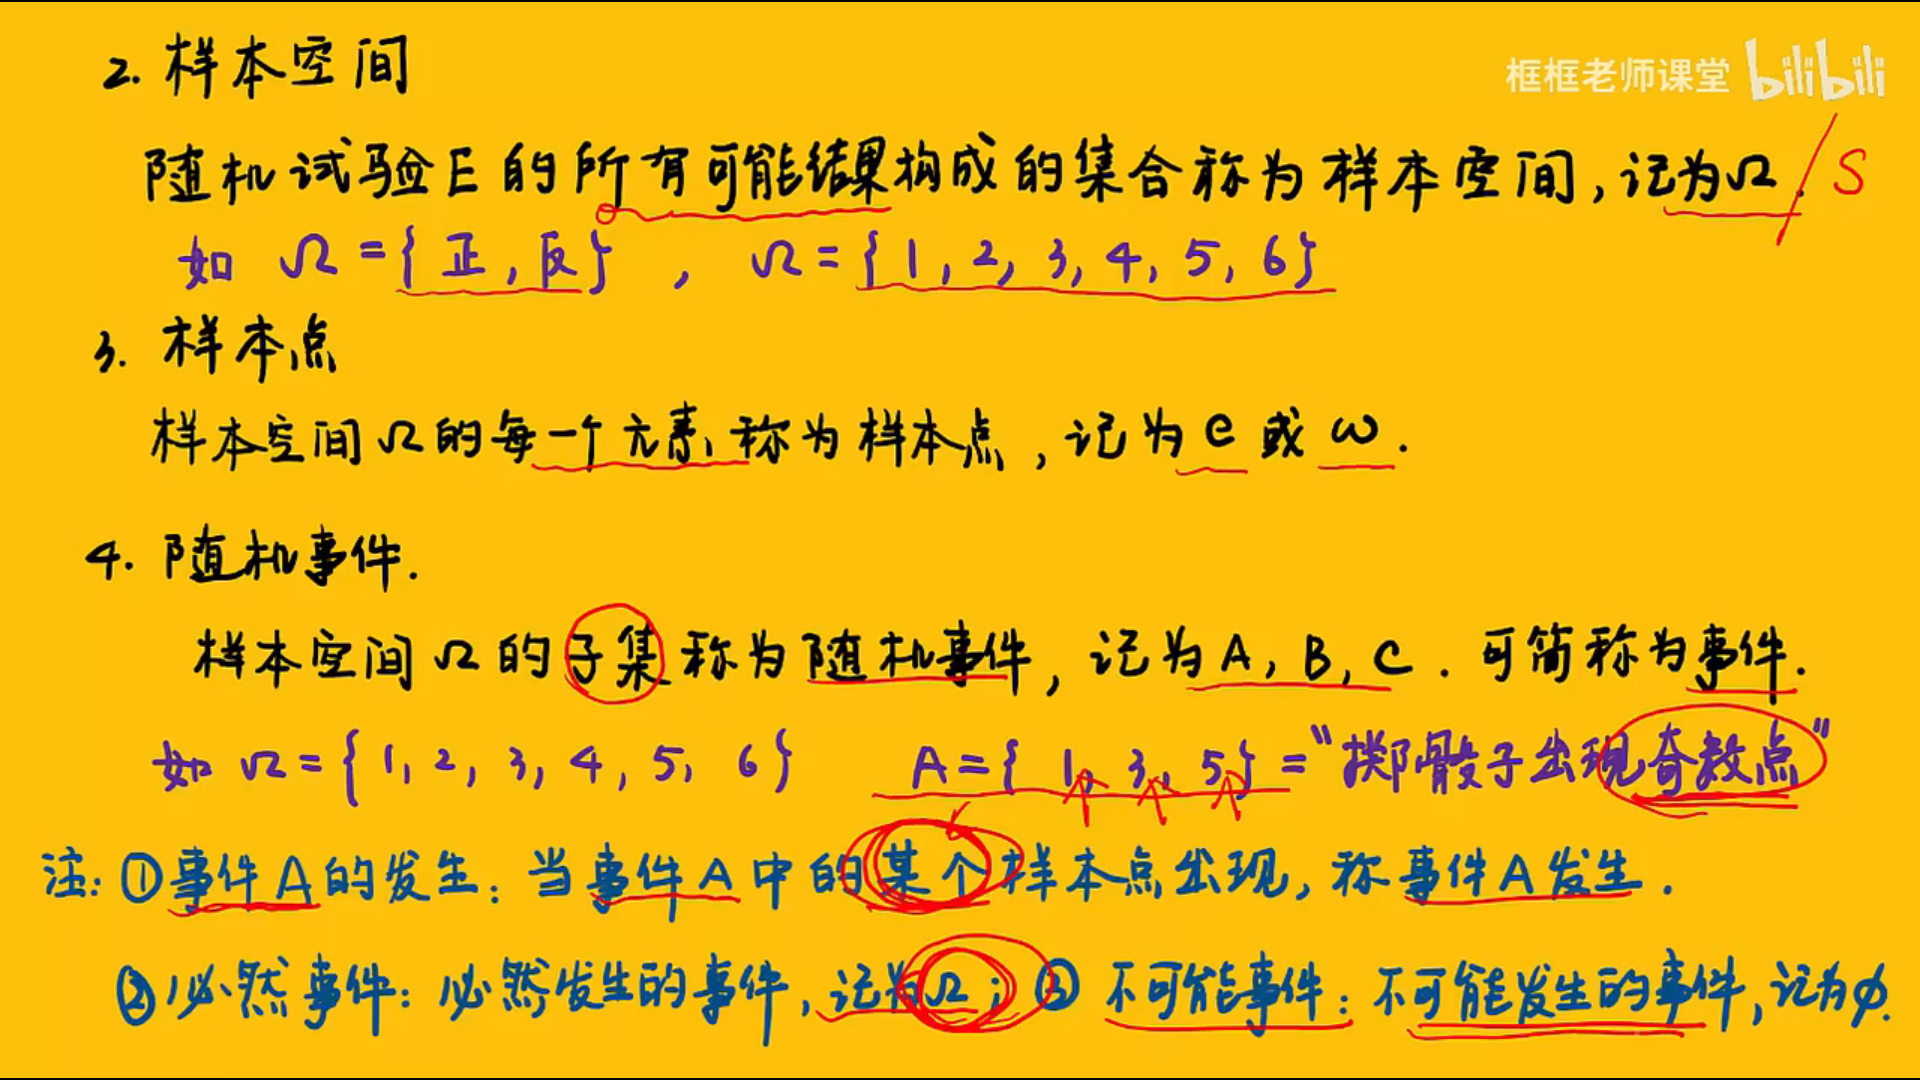 2. 样本空间
框框老师课堂 bilibili
随机试验E的所有可能结果构成的集合称为样本空间,记为Ω. / S
如 Ω={正,反} , Ω={1,2,3,4,5,6}
3. 样本点
样本空间Ω的每一个元素,称为样本点,记为e或ω.
4. 随机事件.
样本空间Ω的子集称为随机事件,记为A,B,C.可简称为事件.
如 Ω={1,2,3,4,5,6} A={1,3,5}="掷骰子出现奇数点"
注:①事件A的发生:当事件A中的某个样本点出现,称事件A发生.
②必然事件:必然发生的事件,记为Ω;③不可能事件:不可能发生的事件,记为φ.